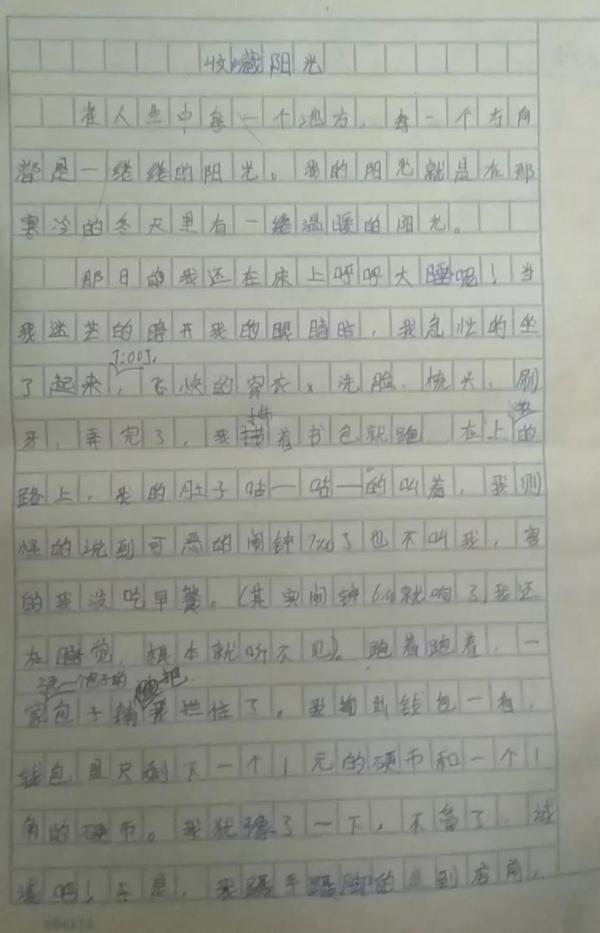 收藏阳光
在人生中每一个地方，每一个方向
都是一缕缕的阳光。我的阳光就是在那
寒冷的冬天里有一缕温暖的阳光。
那日的我还在床上呼呼大睡呢！当
我迷茫的睁开我的眼睛时，我急忙的坐
7:00了，
了起来，飞快的穿衣、洗脸、梳头、刷
牙，弄完了，我背着书包就跑 在上学的
路上，我的肚子咕—咕—的叫着，我
怪的说到可恶的闹钟7:00了也不叫我，害
的我没吃早餐。（其实闹钟6:00就响了我还
在睡觉，根本就听不见）。跑着跑着，一
家包子铺 把我拦住了。我 钱包一看，
钱包里只剩下一个1元的硬币和一个1
角的硬币。我犹豫了一下，不管了，试
试吧！于是，我蹑手蹑脚的 到店前，